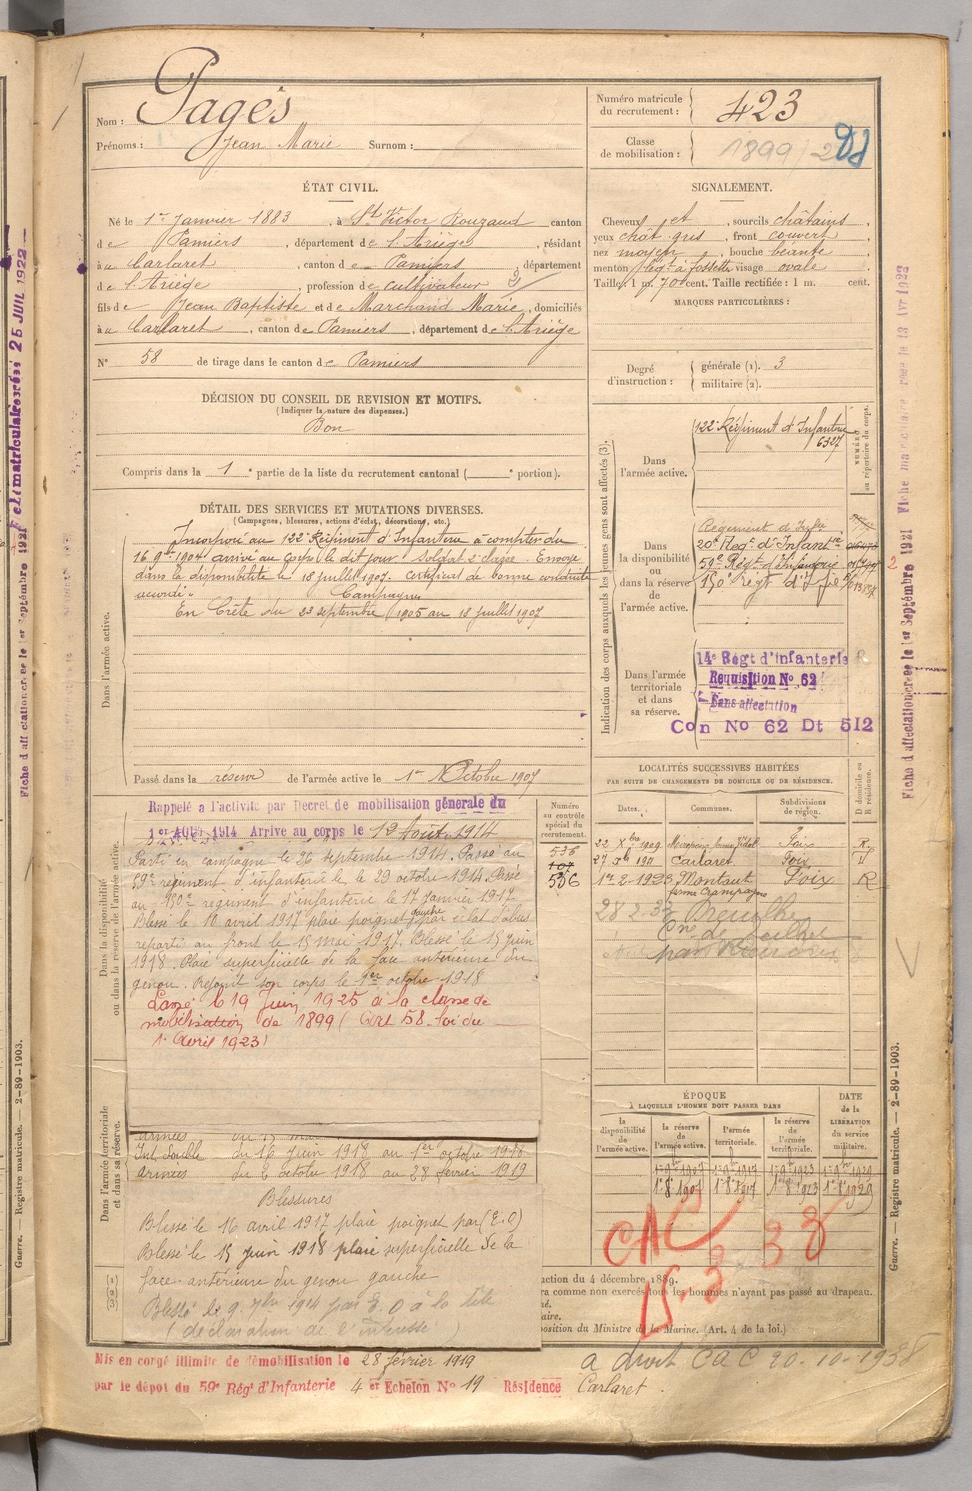 Nom : Pagès
Prénoms : Jean Marie Surnom :
Numéro matricule du recrutement : 423
Classe de mobilisation : 1899
ÉTAT CIVIL.
Né le 1er Janvier 1883, à St Victor Rouzaud canton
de Pamiers, département de l'Ariège, résidant
à Carlaret, canton de Pamiers, département
de l'Ariège, profession de cultivateur
fils de Jean Baptiste et de Marchand Marie, domiciliés
à Carlaret, canton de Pamiers, département de l'Ariège
N° 58 de tirage dans le canton de Pamiers
SIGNALEMENT.
Cheveux et sourcils châtains,
yeux chât. gris, front couvert
nez moyen, bouche béante,
menton à fossette visage ovale
Taille : 1 m. 70 cent. Taille rectifiée : 1 m. cent.
MARQUES PARTICULIÈRES :
Degré d'instruction : générale (1). 3
militaire (2).
DÉCISION DU CONSEIL DE REVISION ET MOTIFS.
(Indiquer la nature des dispenses.)
Bon
Compris dans la 1e partie de la liste du recrutement cantonal ( e portion).
DÉTAIL DES SERVICES ET MUTATIONS DIVERSES.
(Campagnes, blessures, actions d'éclat, décorations, etc.)
Dans l'armée active.
Incorporé au 122e Régiment d'Infanterie à compter du
16 9bre 1904 arrivé au corps le dit jour soldat 2e classe. Envoyé
dans la disponibilité le 18 juillet 1907. Certificat de bonne conduite
accordé.
Campagnes
En Crète du 23 septembre 1905 au 18 juillet 1907
Passé dans la réserve de l'armée active le 1er Octobre 1907
Indication des corps auxquels les jeunes gens sont affectés (3).
NUMÉRO au répertoire du corps.
Dans l'armée active.
122e Régiment d'Infanterie
6327
Dans la disponibilité ou dans la réserve de l'armée active.
Régiment d'Infie
20e Régt d'Infanterie
59e Régt d'Infanterie
150e régt d'Infie
Dans l'armée territoriale et dans sa réserve.
14e Régt d'infanterie
Requisition No 62
Sans affectation
Con No 62 Dt 512
Dans la disponibilité ou dans la réserve de l'armée active.
Rappelé à l'activité par Décret de mobilisation générale du
1er Août 1914 Arrivé au corps le 12 Août 1914
Parti en campagne le 26 septembre 1914. Passé au
59e régiment d'infanterie le 29 octobre 1914. Passé
au 150e régiment d'infanterie le 17 janvier 1917
Blessé le 16 avril 1917 plaie poignet gauche par éclat d'obus
reparti au front le 15 mai 1917. Blessé le 15 juin
1918. Plaie superficielle de la face antérieure du
genou. Rejoint son corps le 1er octobre 1918
Passé le 19 Juin 1925 à la classe de
mobilisation de 1899 (Art 58 loi du
1er Avril 1923)
Numéro au contrôle spécial du recrutement.
536
107
536
LOCALITÉS SUCCESSIVES HABITÉES
PAR SUITE DE CHANGEMENTS DE DOMICILE OU DE RÉSIDENCE.
Dates. Communes. Subdivisions de région. D domicile ou R résidence.
22 Xbre 1909 Foix R
1911 Carlaret Foix D
1er 2-1923 Montaut Foix R
Dans l'armée territoriale et dans sa réserve.
Int. double du 16 juin 1918 au 1er octobre 1918
armées du 2 octobre 1918 au 28 février 1919
Blessures
Blessé le 16 avril 1917 plaie poignet par (E.O)
Blessé le 15 juin 1918 plaie superficielle de la
face antérieure du genou gauche
Blessé le 9 7bre 1914 par E.O à la tête
(déclaration de l'intéressé)
ÉPOQUE
À LAQUELLE L'HOMME DOIT PASSER DANS
la disponibilité de l'armée active.
la réserve de l'armée active.
l'armée territoriale.
la réserve de l'armée territoriale.
DATE de la LIBÉRATION du service militaire.
CAC 15-3 33
action du 4 décembre 1889.
ra comme non exercés tous les hommes n'ayant pas passé au drapeau.
position du Ministre de la Marine. (Art. 4 de la loi.)
Mis en congé illimité de démobilisation le 28 février 1919
par le dépôt du 59e Régt d'Infanterie 4e Echelon No 19 Résidence Carlaret.
a droit CAC 20-10-1938
Guerre. — Registre matricule. — 2-89-1903.
Guerre. — Registre matricule. — 2-89-1903.
Fiche d'affectation créée le 1er Septembre 1921
Fiche d'affectation créée le 1er Septembre 1921
Fiche matriculaire créée 25 JUIL 1922